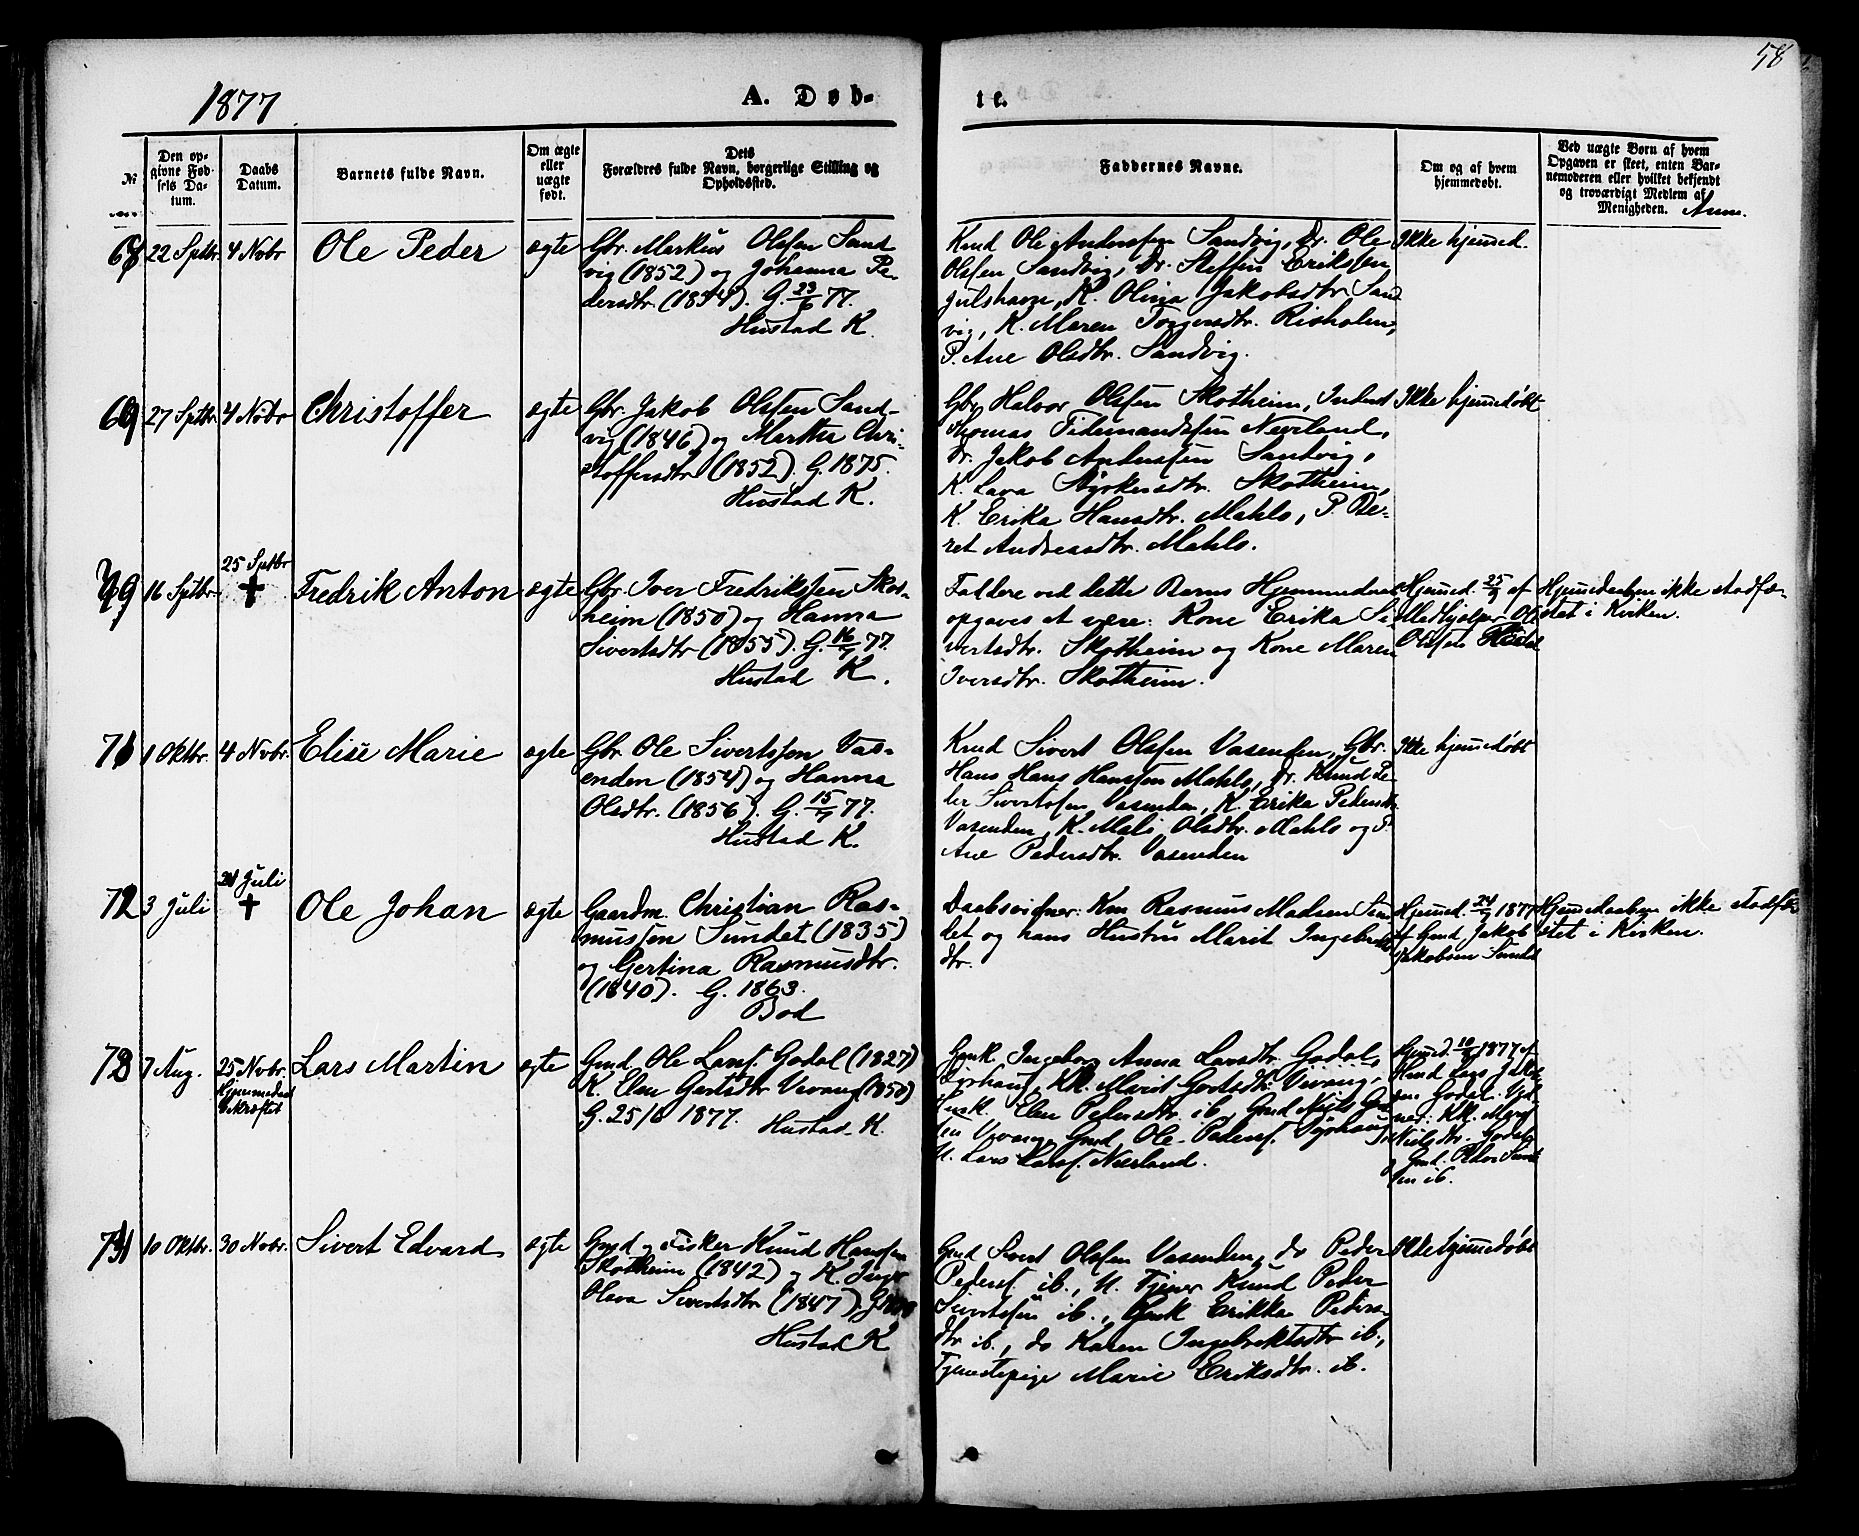 58
1877
A. Døb-
te.
№
Den op-
givne Fød-
sels Da-
tum.
Daabs
Datum.
Barnets fulde Navn.
Om ægte
eller
uægte
født.
Dets
Forældres fulde Navn, borgerlige Stilling og
Opholdssted.
Faddernes Navne.
Om og af hvem
hjemmedøbt.
Ved uægte Børn af hvem
Opgaven er skeet, enten Bar-
nemoderen eller hvilket bekjendt
og troværdigt Medlem af
Menigheden.
Anm.
22 Sptbr. 4 Novbr Ole Peder ægte
Gbr. Markus Olsen Sand
vig (1852) og Johanna Pe-
dersdtr. (1854). G. 23/6 77.
Hustad K.
Knud Ole Andersen Sandvig, Dr. Ole
Olsen Sandvig, Dr. Steffen Eriksen
Julshavn, K. Olina Jakobsdtr. Sand
vig, K. Maren Torgersdtr. Risholen,
P. Ane Olsdtr. Sandvig.
Ikke hjemmed.
69 27 Sptbr. 4 Novbr Christoffer ægte
Gbr. Jakob Olsen Sand-
vig (1846) og Martha Chri-
stoffersdtr (1852). G. 1875.
Hustad K.
Gbr. Halvor Olsen Skotheim, Inderst
Thomas Tidemandsen Nerland,
Dr. Jakob Andersen Sandvig,
K. Lava Styrkersdtr. Skotheim,
K. Erika Hansdtr. Mahlo, P. Be-
ret Andreasdtr. Mahlo.
Ikke hjemmedøbt
16 Sptbr. 25 Sptbr † Fredrik Anton ægte
Gbr. Iver Fredriksen Skot-
heim (1850) og Hanna
Sivertsdtr (1855). G. 16/7 77.
Hustad K.
Faddere ved dette Barns Hjemmedaab
opgives at være: Kone Erika Si-
vertsdtr. Skotheim og Kone Maren
Iversdtr. Skotheim.
Hjemmed. 25/9 af
Medhjelper Ole
Olsen
Hjemmedaaben ikke stadfæ-
stet i Kirken.
71 1 Oktbr. 4 Novbr. Elise Marie ægte
Gbr. Ole Sivertsen Vas-
enden (1854) og Hanna
Olsdtr. (1856). G. 15/7 77.
Hustad K.
Knud Sivert Olsen Vasenden, Gbr.
Hans Hans Hanssen Mahlo, Dr. Knud Pe-
der Sivertsen Vasenden, K. Erika Pedersdtr.
Vasenden, K. Mali Olsdtr. Mahlo og P.
Ane Pedersdtr. Vasenden
Ikke hjemmedøbt
72 3 Juli 24 Juli † Ole Johan ægte
Gaardm. Christian Ras-
mussen Sundet (1835)
og Gertina Rasmusdtr.
(1840). G. 1863.
Bod
Daabsvidner: Knud Rasmus Madsen Sun
det og hans Hustru Marit Ingebrigts
dtr.
Hjemmed. 24/7 1877
af Gmd. Jakob
Jakobsen Sundet
Hjemmedaaben ikke stadfæ
stet i Kirken.
73 7 Aug. 25 Novbr. Lars Martin ægte
Hjemmedaab
bekræftet
Gmd. Ole Larss. Godal (1827)
K. Elen Gertsdtr Vevang (1850)
G. 25/6 1877. Hustad K.
Gmk. Ingeborg Anna Larsdtr. Godal,
KK. Marit Gertsdtr. Vevang,
Husk. Elen Pedersdtr. ib., Gmd Niels
sen Vevang, Gmd. Ole Peders.
U. Lars Larss. Nerland.
Hjemmed. 10/8 1877 af
Gmd Lars Jakob
sen Godal. Vid-
ner: KK. Marit
Nielsdtr. Godal
og Gmd. Peder
sen ib.
74 10 Oktbr. 30 Novbr. Sivert Edvard ægte
Gmd og Fisker Knud Hansen
Skotheim (1842) og K. Inger
Olava Sivertsdtr (1847).
Hustad K
Gmd Sivert Olsen Vasenden, do Peder
Peders. ib., U. Tjener Knud Peder
Sivertsen ib., Gmk Erikka Peders-
dtr ib., do Karen Ingebrektsdtr ib.,
Tjenestepige Marie Eriksdtr. ib.
Ikke hjemmedøbt